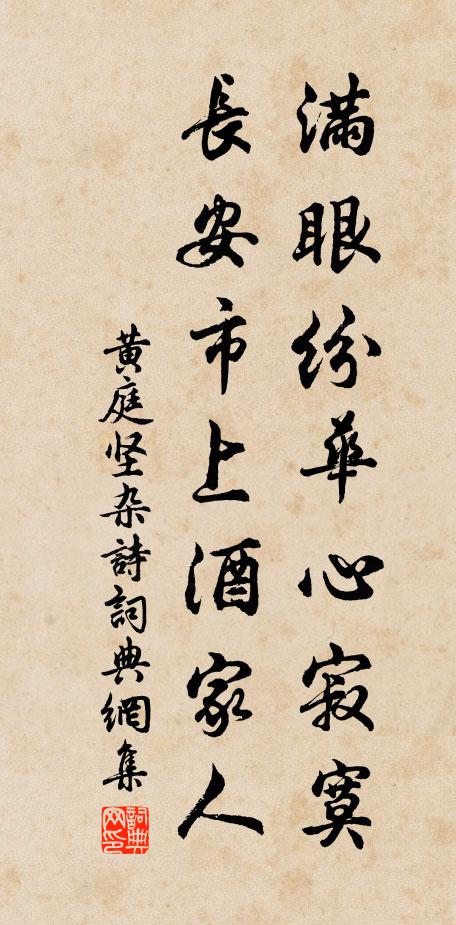 滿眼紛華心寂寞
長安市上酒家人
黄庭坚杂詩詞典網集
詞典網印